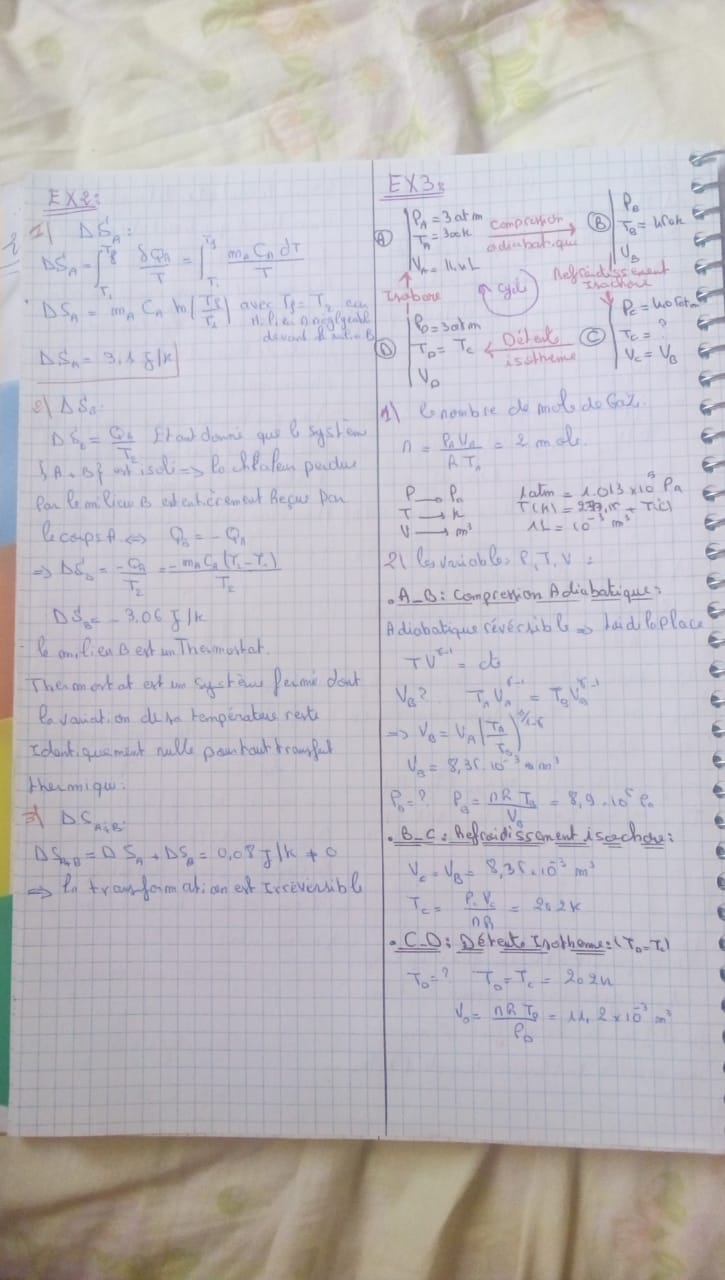 EX2:
1) ΔS_A:
ΔS_A = ∫_{T_1}^{T_f} δQ_A/T = ∫_{T_1}^{T_f} m_A C_A dT/T
ΔS_A = m_A C_A ln(T_f/T_1) avec T_f = T_2 car
négligeable
devant
ΔS_A = 3.1 J/K
2) ΔS_B:
ΔS_B = Q_B/T_2 Etant donné que le système
{A+B} est isolé => la chaleur perdue
Par le milieu B est entièrement Reçue par
le corps A <=> Q_B = -Q_A
=> ΔS_B = -Q_A/T_2 = -m_A C_A (T_2 - T_1)/T_2
ΔS_B = -3.06 J/K
le milieu B est un Thermostat.
Thermostat est un système fermé dont
la variation de sa température reste
Identiquement nulle pour tout transfert
thermique.
3) ΔS_{A+B}:
ΔS_{A+B} = ΔS_A + ΔS_B = 0,08 J/K ≠ 0
=> la transformation est Irréversible
EX3:
A P_A = 3 atm compression B P_B
T_A = 300K adiabatique T_B = 450K
V_A = V_B
Isobare cycle Refroidissement
Isochore
D P_D = 3 atm Détente C P_C =
T_D = T_C isotherme T_C = ?
V_D V_C = V_B
1) le nombre de mole de Gaz.
n = P_A V_A / R T_A = 2 mol.
P → Pa 1 atm = 1.013 × 10^5 Pa
T → K T(K) = + T(°C)
V → m³ 1L = 10^-3 m³
2) les variables P, T, V:
. A_B: Compression Adiabatique:
Adiabatique réversible => Loi de Laplace
T V^{γ-1} = cte
V_B? T_A V_A^{γ-1} = T_B V_B^{γ-1}
=> V_B = V_A (T_A/T_B)^{1/γ-1}
V_B = 8,35.10^-3 m³
P_B = ? P_B = nRT_B/V_B = 8,9.10^5 Pa
. B_C: Refroidissement isochore:
V_C = V_B = 8,35.10^-3 m³
T_C = P_C V_C/nR = 202K
. C_D: Détente Isotherme: (T_D = T_C)
T_D = ? T_D = T_C = 202K
V_D = nRT_D/P_D = 11,2 × 10^-3 m³